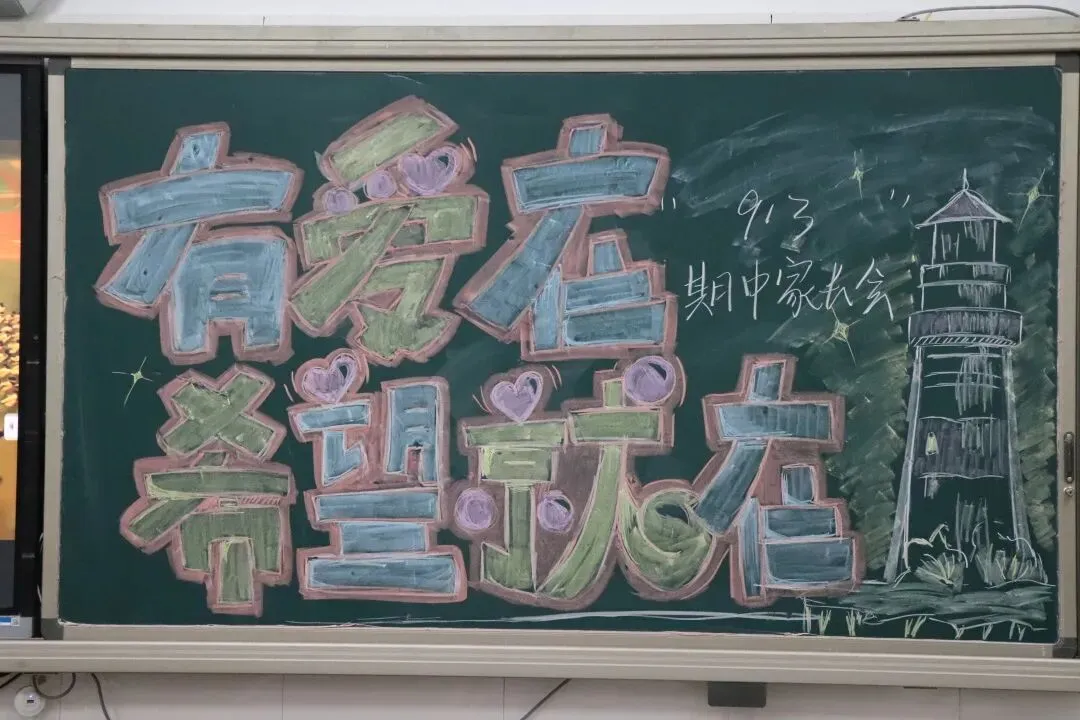 有爱在
希望就在
" 913 "
期中家长会